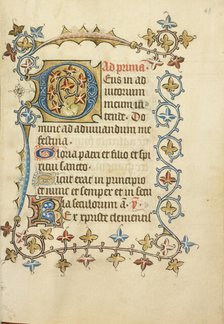 Ad prima
Deus in ad
iutorium
meum in
tende. Do
mine ad adiuuandum me
festina.
Gloria patri et filio et spi
ritui sancto.
Sicut erat in principio
et nunc et semper et in secu
la seculorum a.
Rex christe clemens